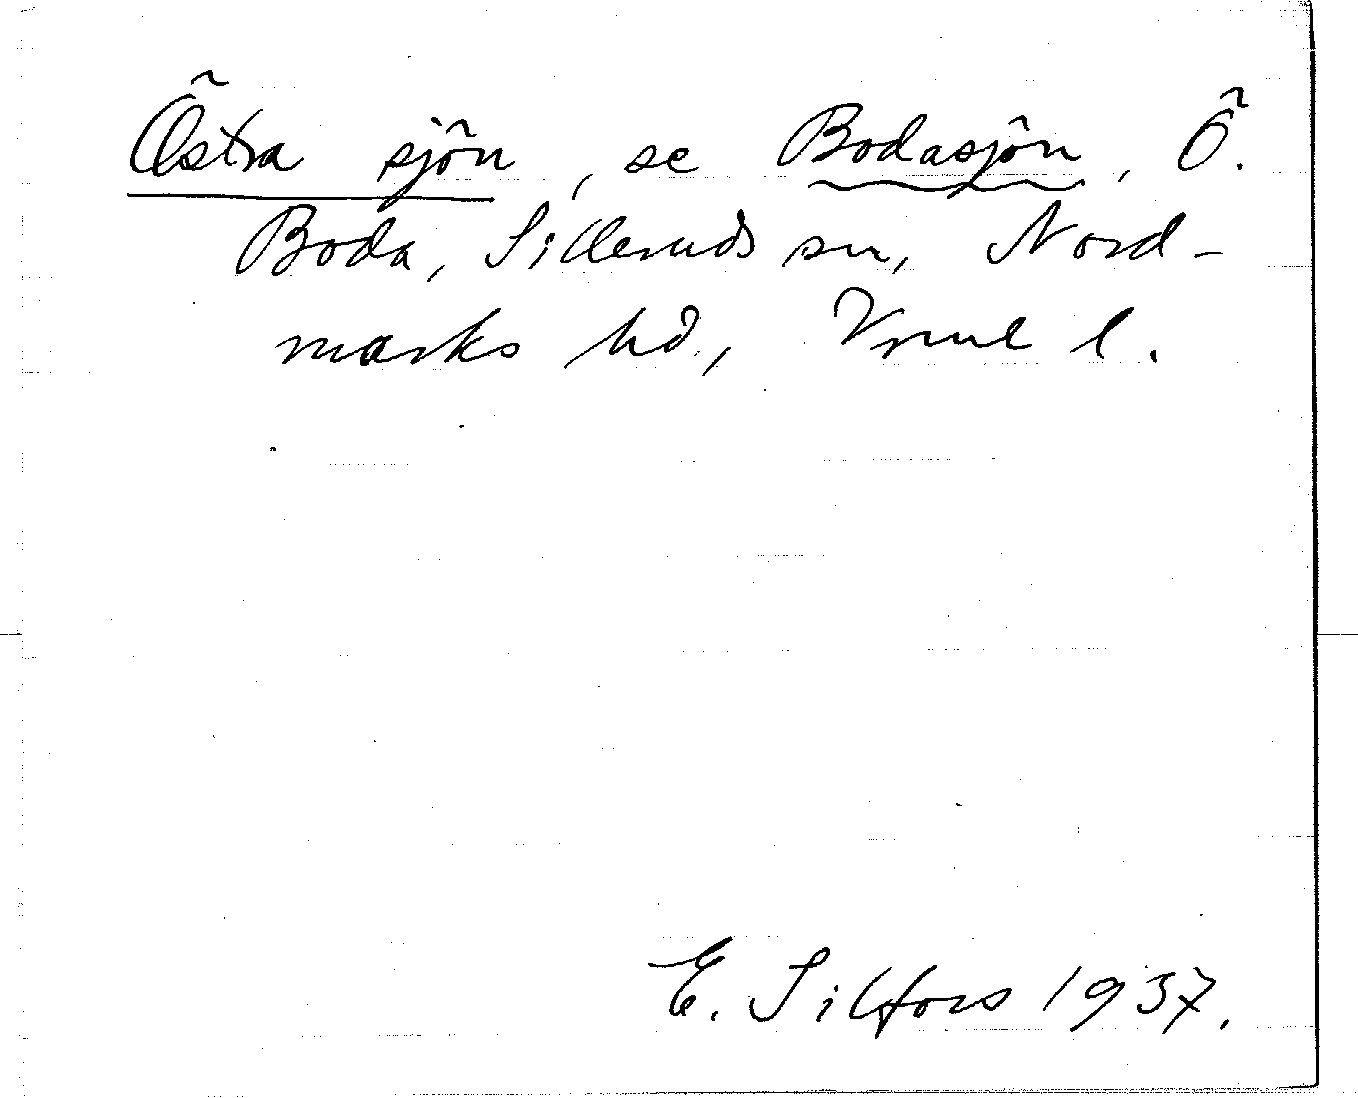 Östra sjön, se Bodasjön, Ö.
Boda, Silleruds sn, Nord-
marks hd, Vrml l.
E. Silfors 1937.